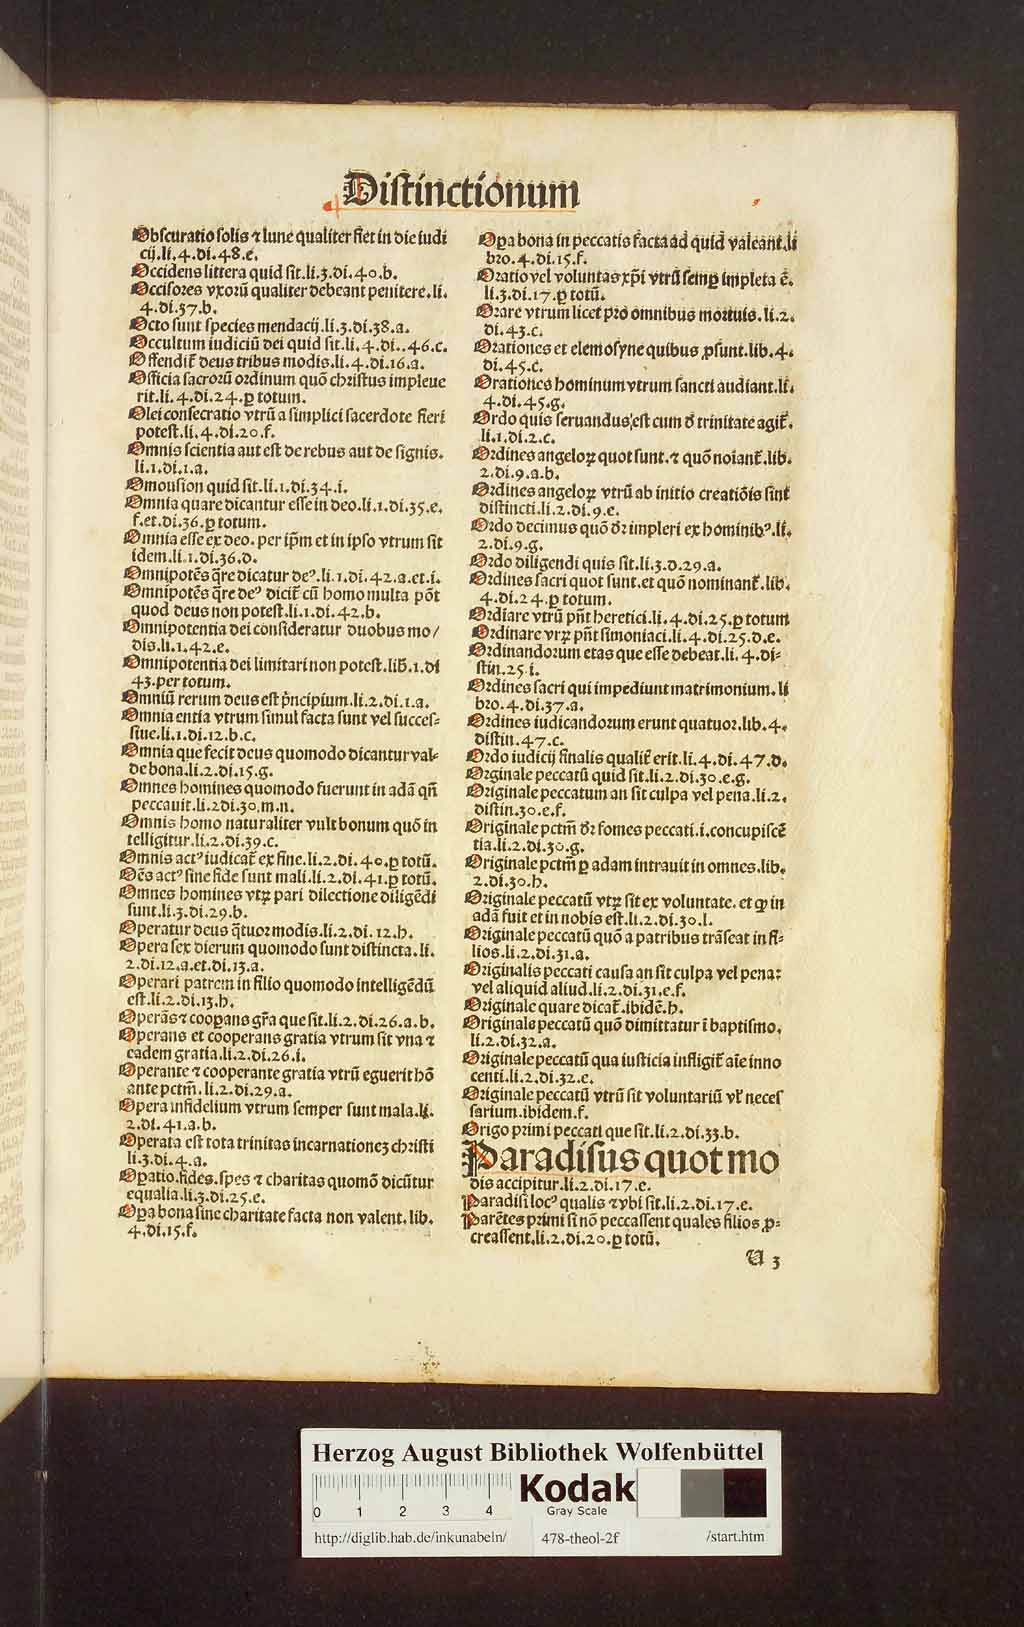 Distinctionum
Obscuratio solis ⁊ lune qualiter fiet in die iudi
cij.li.4.di.48.e.
Occidens littera quid sit.li.3.di.40.b.
Occisores vxorū qualiter debeant penitere.li.
4.di.37.b.
Octo sunt species mendacij.li.3.di.38.a.
Occultum iudiciū dei quid sit.li.4.di..46.c.
Offendit̄ deus tribus modis.li.4.di.16.a.
Officia sacrorū ordinum quō christus impleue
rit.li.4.di.24.ꝑ totum.
Olei consecratio vtrū a simplici sacerdote fieri
potest.li.4.di.20.f.
Omnis scientia aut est de rebus aut de signis.
li.1.di.1.a.
Omousion quid sit.li.1.di.34.i.
Omnia quare dicantur esse in deo.li.1.di.35.e.
f.et.di.36.ꝑ totum.
Omnia esse ex deo. per ip̄m et in ipso vtrum sit
idem.li.1.di.36.d.
Omnipotēs q̄re dicatur deꝰ.li.1.di.42.a.et.i.
Omnipotēs q̄re deꝰ dicit̄ cū homo multa pōt
quod deus non potest.li.1.di.42.b.
Omnipotentia dei consideratur duobus mo/
dis.li.1.42.e.
Omnipotentia dei limitari non potest.lib̄.1.di
43.per totum.
Omniū rerum deus est p̄ncipium.li.2.di.1.a.
Omnia entia vtrum simul facta sunt vel succes⸗
siue.li.1.di.12.b.c.
Omnia que fecit deus quomodo dicantur val⸗
de bona.li.2.di.15.g.
Omnes homines quomodo fuerunt in adā qn̄
peccauit.li.2di.30.m.n.
Omnis homo naturaliter vult bonum quō in
telligitur.li.2.di.39.c.
Omnis actꝰ iudicat̄ ex fine.li.2.di.40.ꝑ totū.
Oēs actꝰ sine fide sunt mali.li.2.di.41.ꝑ totū.
Omnes homines vtꝝ pari dilectione diligēdi
sunt.li.3.di.29.b.
Operatur deus q̄tuor modis.li.2.di.12.h.
Opera sex dierum quomodo sunt distincta.li.
2.di.12.a.et.di.13.a.
Operari patrem in filio quomodo intelligēdū
est.li.2.di.13.h.
Operās ⁊ cooꝑans gr̄a que sit.li.2.di.26.a.b.
Operans et cooperans gratia vtrum sit vna ⁊
eadem gratia.li.2.di.26.i.
Operante ⁊ cooperante gratia vtrū eguerit hō
ante pctm̄.li.2.di.29.a.
Opera infidelium vtrum semper sunt mala.li.
2.di.41.a.b.
Operata est tota trinitas incarnationeꝫ christi
li.3.di.4.a.
Oꝑatio.fides.spes ⁊ charitas quomō dicūtur
equalia.li.3.di.25.e.
Oꝑa bona sine charitate facta non valent.lib.
4.di.15.f.
Oꝑa bona in peccatis facta ad quid valeant.li
bro.4.di.15.f.
Oratio vel voluntas xp̄i vtrū semꝑ impleta ē.
li.3.di.17.ꝑ totū.
Orare vtrum licet pro omnibus mortuis.li.2.
di.43.c.
Orationes et elemosyne quibus ꝓsunt.lib.4.
di.45.c.
Orationes hominum vtrum sancti audiant.li.
4.di.45.g.
Ordo quis seruandus est cum d̄ trinitate agit̄.
li.1.di.2.c.
Ordines angeloꝝ quot sunt.⁊ quō noīant̄.lib.
2.di.9.a.b.
Ordines angeloꝝ vtrū ab initio creatiōis sint
distincti.li.2.di.9.e.
Ordo decimus quō dr̄ impleri ex hominibꝰ.li.
2.di.9.g.
Ordo diligendi quis sit.li.3.d.29.a.
Ordines sacri quot sunt.et quō nominant̄.lib.
4.di.24.ꝑ totum.
Ordīare vtrū pn̄t heretici.li.4.di.25.ꝑ totum
Ordinare vtꝝ pn̄t simoniaci.li.4.di.25.d.e.
Ordinandorum etas que esse debeat.li.4.di⸗
stin.25.i.
Ordines sacri qui impediunt matrimonium.li
bro.4.di.37.a.
Ordines iudicandorum erunt quatuor.lib.4.
distin.47.c.
Ordo iudicij finalis qualit̄ erit.li.4.di.47.d.
Orginale peccatū quid sit.li.2.di.30.e.g.
Originale peccatum an sit culpa vel pena.li.2.
distin.30.e.f.
Originale pctm̄ dr̄ fomes peccati.i.concupiscē
tia.li.2.di.30.g.
Originale pctm̄ ꝑ adam intrauit in omnes.lib.
2.di.30.h.
Originale peccatū vtꝝ sit ex voluntate. et ꝙ in
adā fuit et in nobis est.li.2.di.30.l.
Originale peccatū quō a patribus trāseat in fi⸗
lios.li.2.di.31.a.
Originalis peccati causa an sit culpa vel pena:
vel aliquid aliud.li.2.di.31.e.f.
Originale quare dicat̄.ibidē.h.
Originale peccatū quō dimittatur ī baptismo.
li.2.di.32.a.
Originale peccatū qua iusticia infligit̄ aīe inno
centi.li.2.di.32.e.
Originale peccatū vtrū sit voluntariū vl̄ neces
sarium.ibidem.f.
Origo primi peccati que sit.li.2.di.33.b.
Paradisus quot mo
dis accipitur.li.2.di.17.e.
Paradisi locꝰ qualis ⁊ vbi sit.li.2.di.17.e.
Parētes primi si nō peccassent quales filios ꝓ⸗
creassent.li.2.di.20.ꝑ totū.
U 3
Herzog August Bibliothek Wolfenbüttel
0 1 2 3 4
Kodak
Gray Scale
http://diglib.hab.de/inkunabeln/ 478-theol-2f /start.htm